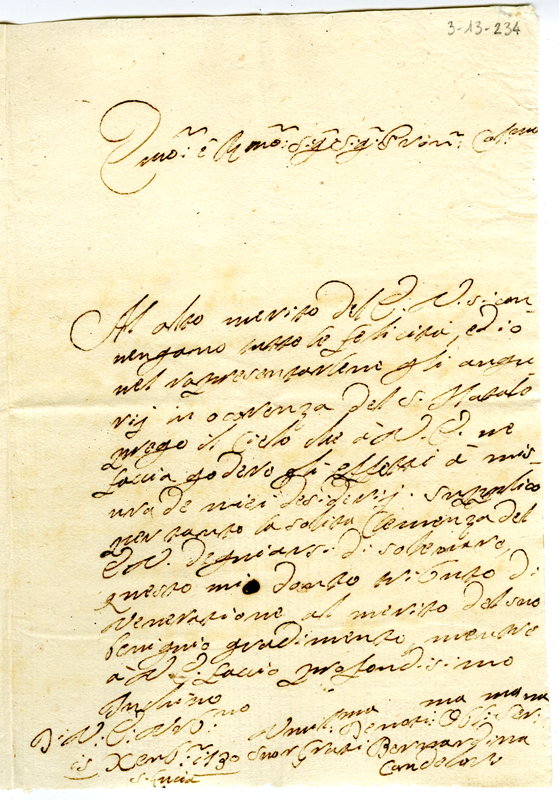 3-13-234
Em.mo: e R.mo: S.r: e S.r: P.ron: Col.mo
Al alto merito del E. V. si con
uengano tutte le felicità, ed io
nel rapresentarlene gli augu
rij in ocorenza del S. Natale
prego il Cielo che à V. E. ne
faccia godere gli effetti à mis
ura de miei desiderij. supplico
pertanto la solita Clemenza del
E. V. degniarsi di
questo mio douto tributo di
Veneratione al merito del suo
benignio gradimento, mentre
à V. E. faccio profondissimo
Inchino
Di V. E. R.mo
Xerb.re 1730
S. Lucia
Vmil.ma Deuot.ma Obl.ma Ser.
Suor Bernardina